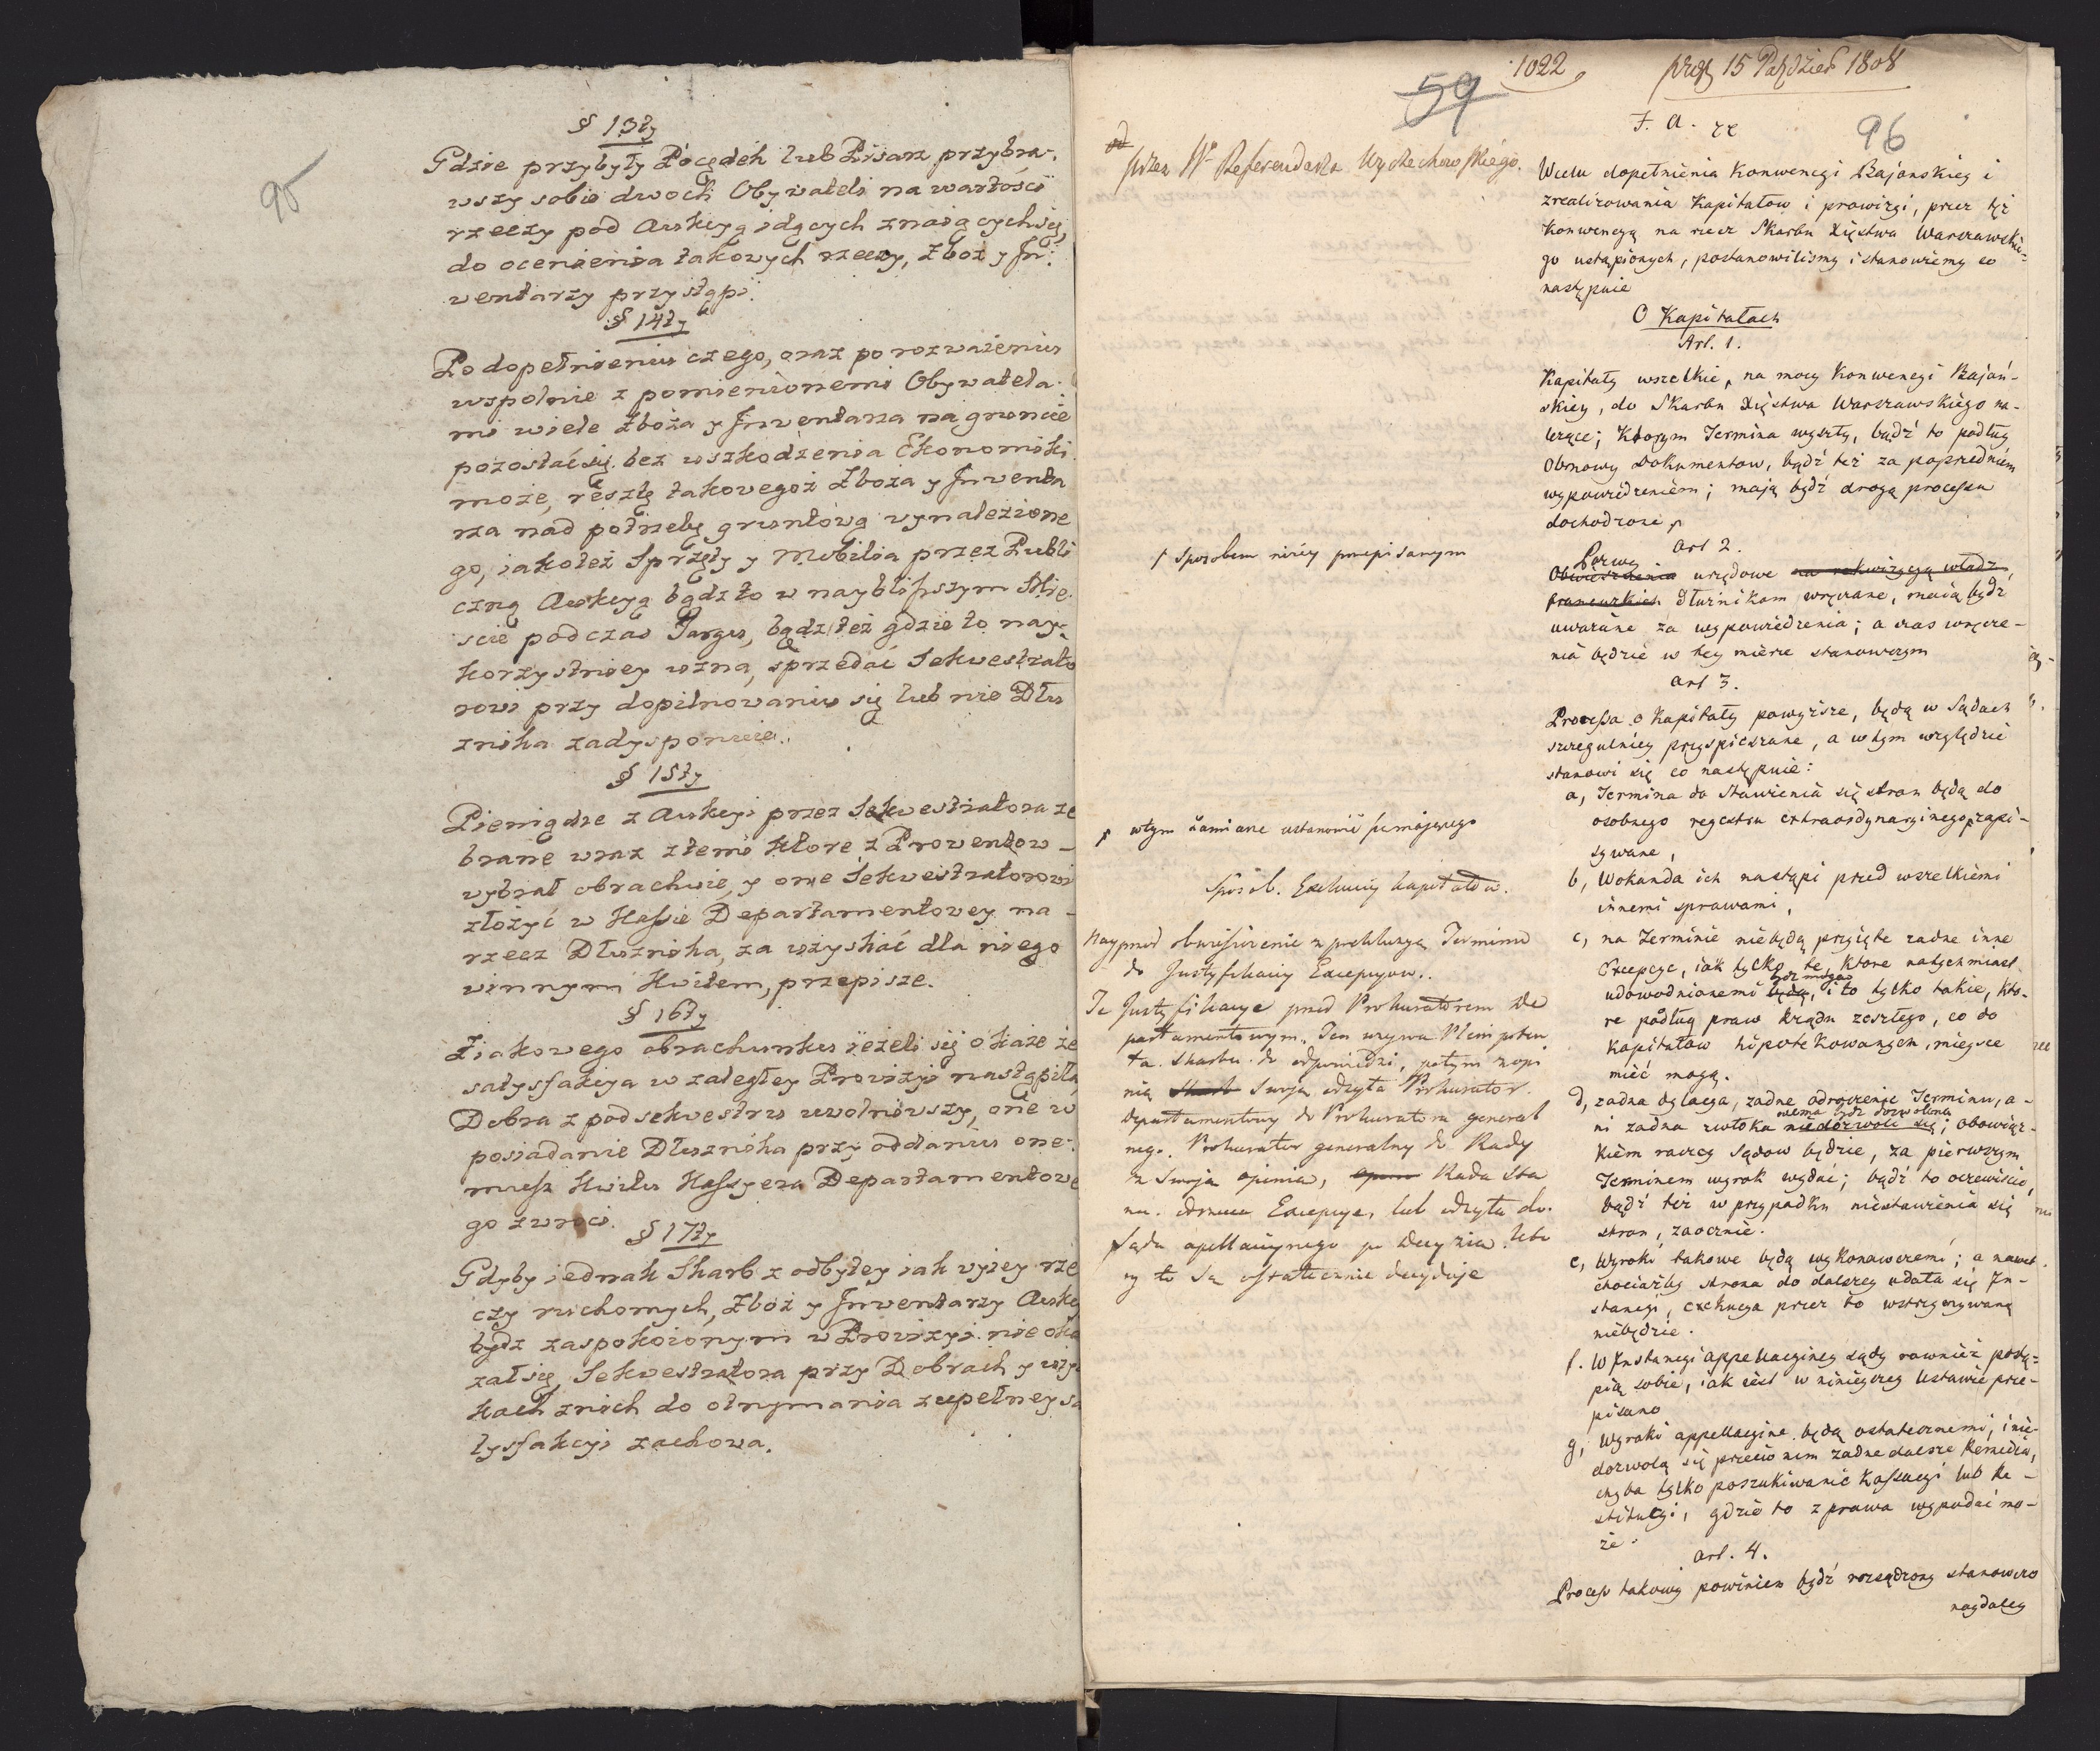 95
§ 13ty
Gdzie przybyły Pocędeh lub Pisarz przybra-
wszy sobie dwoch Obywateli na wartości
rzeczy pod Aukcyą idących znaiących się,
do ocenienia takowych rzeczy, Zboż y In-
wentarzy przystąpi.
§ 14ty
Po dopełnieniu czego, oraz po rozważeniu
wspolnie z pomienionemi Obywatela-
mi wiele Zboża y Inwentarza na gruncie
pozostać się bez uszkodzenia Ekonomiki
może, resztę takovegoż Zboża y Inventa
rza nad potrzebę gruntową vynalezione
go, iako też Sprzęty y Mobilia przez Publi
czną Aukcyą bądz to w naybliższym Mie-
scie podczas Targu, bądz też gdzie to nay-
korzystniey uzna, sprzedać Sekwestrato
rowi przy dopilnowaniu się lub nie Dłu
znika zadysponuie.
§ 15ty
Pieniądze z Aukcyi przez Sekwestratora ze
brane wraz z temi ktore z Proventow
vybrał obrachuie, y one Sekwestratorowi
złożyć w Kassie Departamentovey na
rzecz Dłuznika, za uzyskać dla niego
vinnym Kwitem, przepisze.
§ 16ty
Z iakovego obrachunku ieżeli się okaże że
satysfakcya w zaległey Prowizyi nastąpiła
Dobra z pod sekvestru uvolnivszy, one w
posiadanie Dłuznika przy oddaniu one-
muż Kwitu Kassyera Departamentove
go zwroci.
§ 17ty
Gdyby iednak Skarb z odbytey iak vyżey rze
czy ruchomych, Zboż y Inventarzy Aukcy
bydz zaspokoionym w Prowizyi nie oka
zał się, Sekvestratora przy Dobrach y uży
kach znich do otrzymania zupełney sa
tysfakcyi zachowa.
59
1022
15 Październ 1808
96
przez Wo Referendarza Wyczechowskiego.
F. A. rr
W celu dopełnienia Konwencyi Bajońskiey i
zrealizowania Kapitałow i prowizyi, przez tęż
Konwencyą na rzecz Skarbu Xięstwa Warszawskie-
go ustąpionych, postanowiliśmy i stanowiemy co
następuie
O Kapitałach
Art. 1.
Kapitały wszelkie, na mocy Konwencyi Bajoń-
skiey, do Skarbu Xięstwa Warszawskiego na-
leżące; Ktorym Termina wyszły, bądź to podług
Obmowy Dokumentow, bądź też za poprzedniem
wypowiedzeniem; mają bydź drogą processu
dochodzone
sposobem niżey przepisanym
Art 2.
Pozwy
Obwieszczenia urzędowe na rekwizycyą władz
francuzkich Dłużnikom wręczone, maią bydź
uważane za wypowiedzenia; a czas wręcze-
nia będzie w tey mierze stanowczym
Art 3.
Processa o Kapitały powyższe, będą w Sądach
szczegulniey przyspieszane, a w tym względzie
stanowi się co następuie:
a, Termina do Stawienia się stron będą do
osobnego regestru extraordynaryinego, zapi-
sywane,
w tym zamiarze ustanowić się maiącego
b, Wokanda ich nastąpi przed wszelkiemi
innemi sprawami,
c, na Terminie niebędą przyięte zadne inne
Excepcye, iak tylko te, ktore natychmiast
bydz mogą
udowodnionemi będą, i to tylko takie, kto-
re podług praw Rządu zeszłego, co do
Kapitałow hipotekowanych, mieysce
mieć mogą.
d, zadna dylacya, zadne odroczenie Terminu, a-
niema bydz dozwoloną
ni zadna zwłoka niedozwoli się; obowiąz-
kiem raczey Sądow będzie, za pierwszym
Terminem wyrok wydać; bądź to oczewiście,
bądź też w przypadku niestawienia się
stron, zaocznie.
e, Wyroki takowe będą wykonawczemi; a nawet
chociażby strona do dalszey udała się In-
stancyi, exekucya przez to wstrzymywaną
niebędzie.
f. W Instancyi appellacyiney sądy rownież postą-
pią sobie, iak iest w ninieyszey Ustawie prze-
pisano
g, Wyroki appellacyine będą ostatecznemi, i nie-
dozwolą się przeciw nim żadne dalsze Remedia,
chyba tylko poszukiwanie Kassacyi lub Re-
stitucyi, gdzie to z prawa wypadać mo-
że.
Art. 4.
Process takowy powinien bydź rozsądzony stanowczo
naydaley
Sposób Exekucyi kapitałów.
Nayprzod obwieszczenie z prekluzyą Terminu
do Justyfikacyi Excepcyow.
Te Justyfikacye przed Prokuratorem De
partamentowym. Ten wzywa Plenipoten
ta Skarbu do odpowiedzi, potym z opi
nią Skarb Swoją odsyła Prokurator
Departamentowy do Prokuratora general
nego. Prokurator generalny do Rady
z Swoją opinią, opini Rada Sta
nu odrzuca Excepcye, lub odsyła do
Sądu apellacyinego po decyzią. Kto
ry to Sąd ostatecznie decyduje